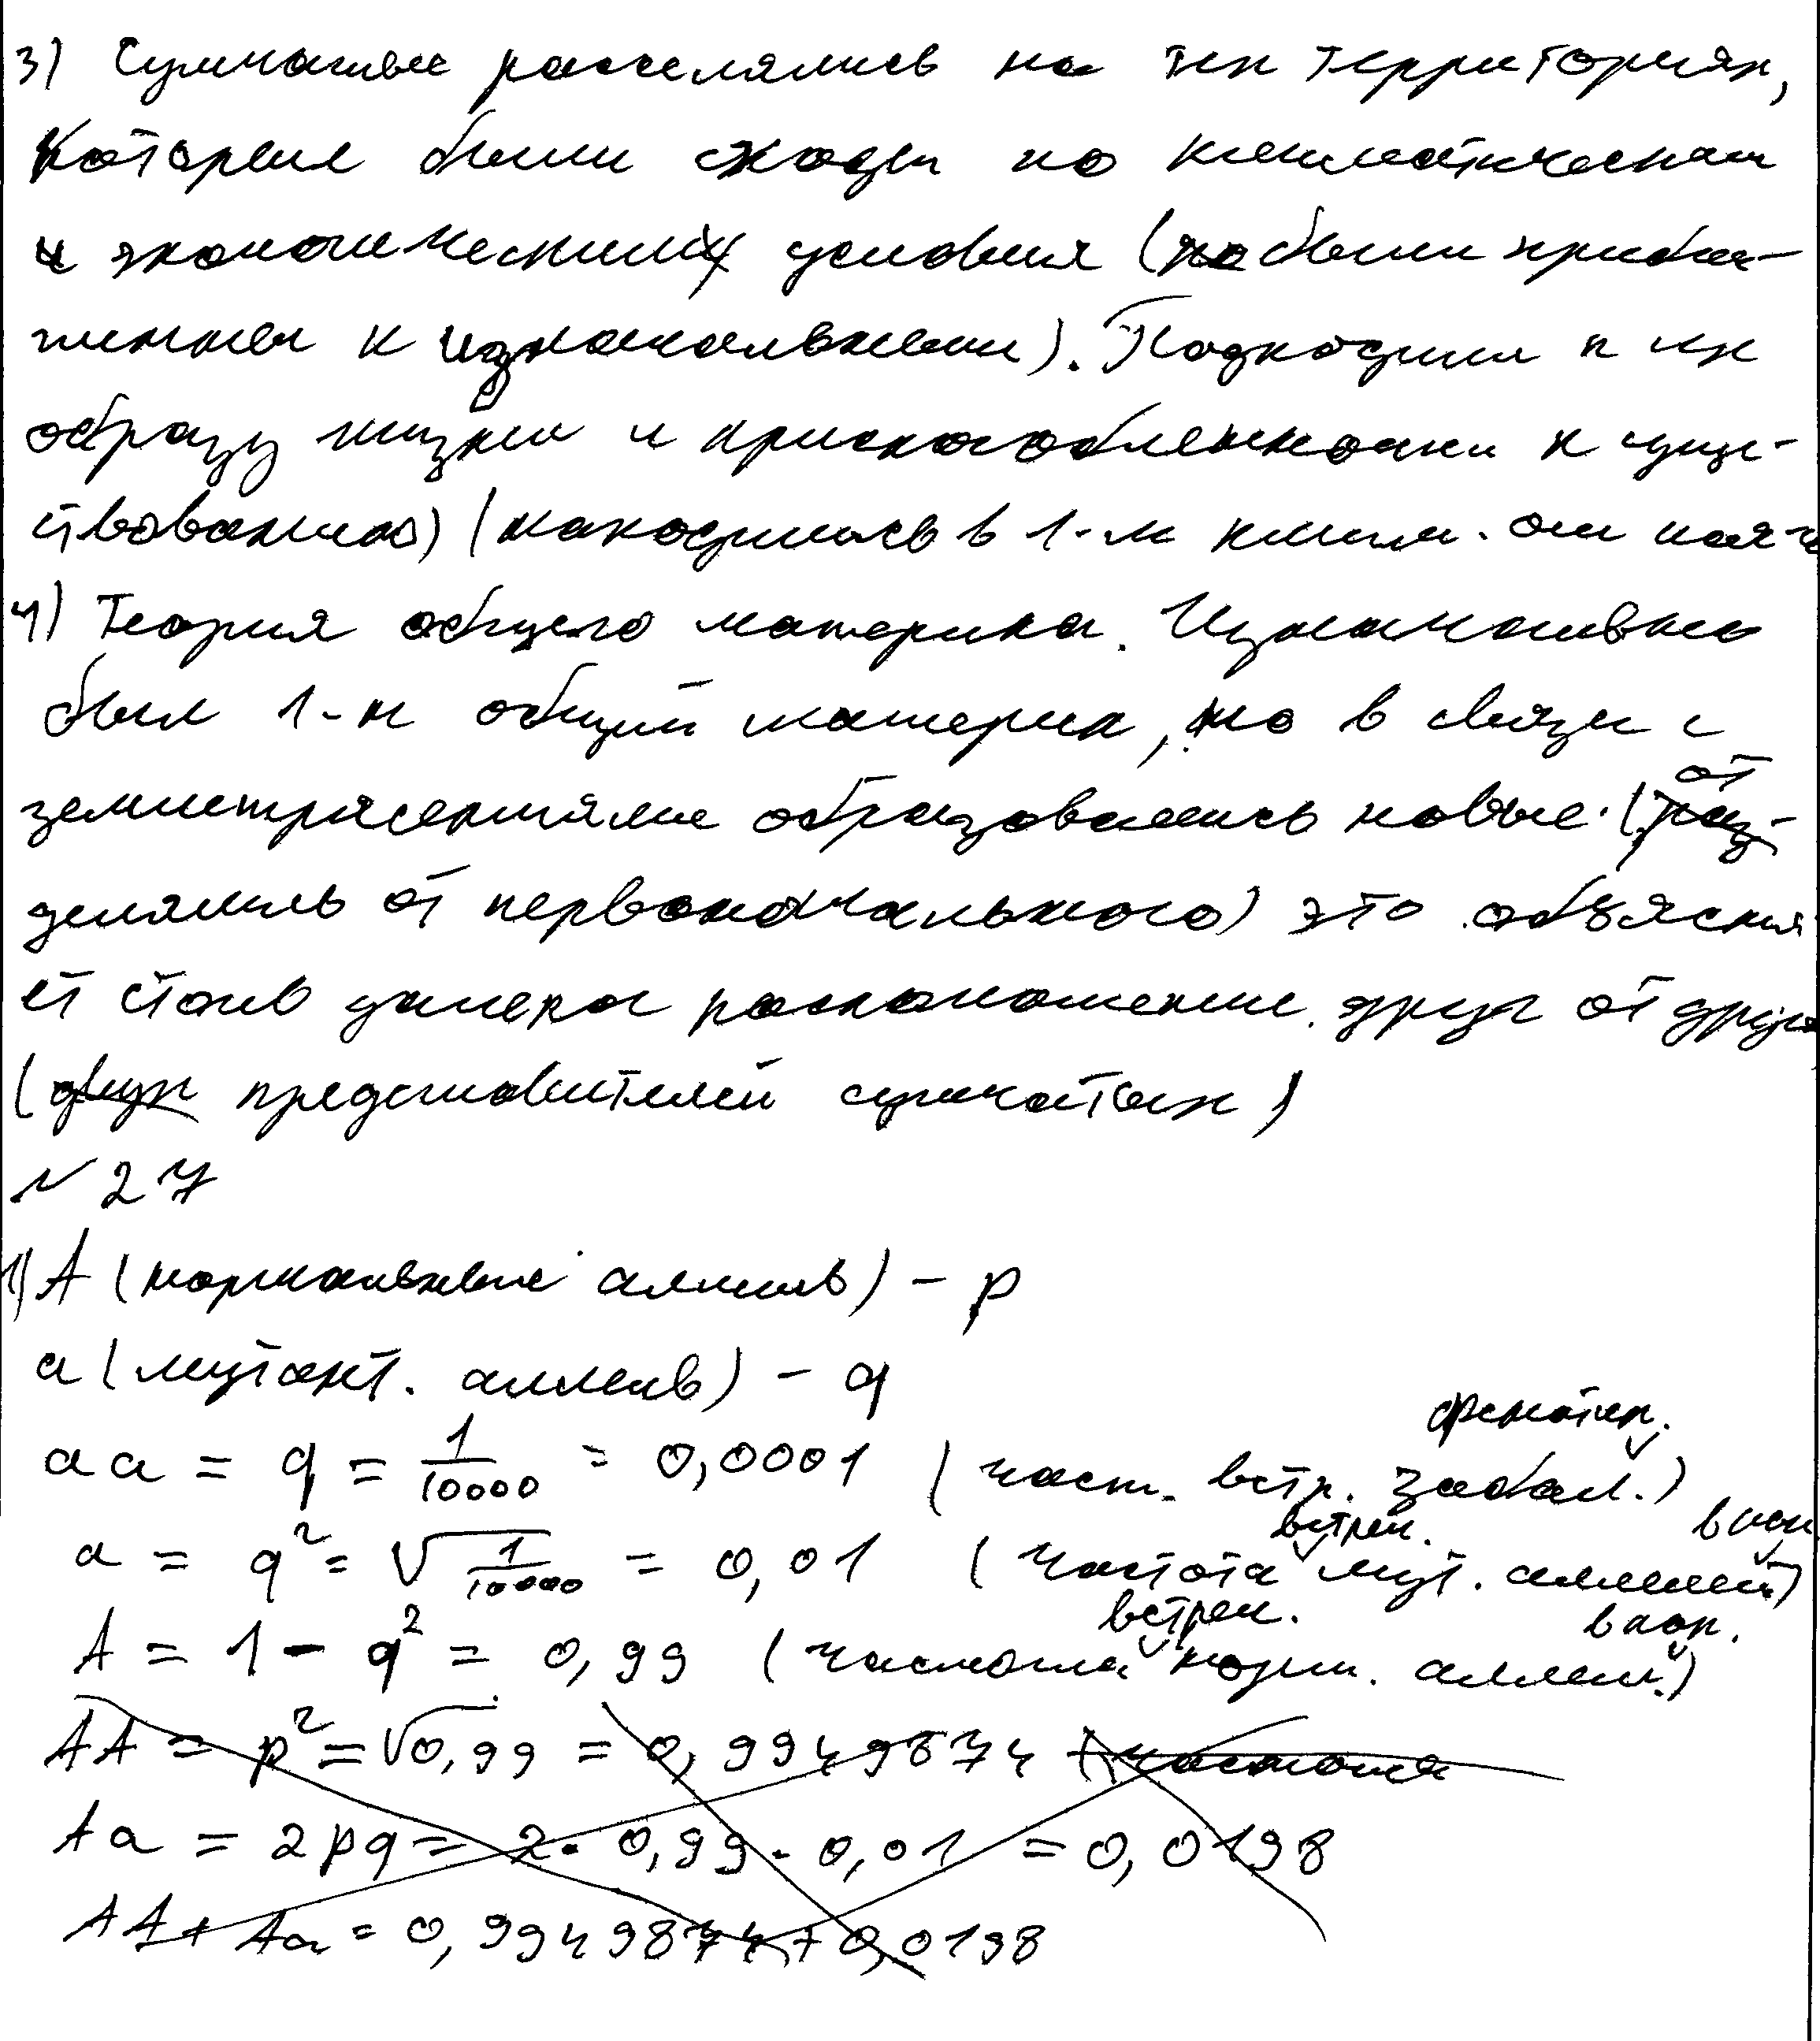 3) Сумчатые расселялись на тех территориях,
которые были сходы по климатическим
и экономическим условия (были прибли-
женные к изначальным). Подходили к их
образу жизни и приспособленности к суще-
ствованию) (находились в 1-м клим.
4) Теория общего материка. Изначально
был 1-н общий материк, но в связи с
землетрясениями образовались новые (от
делялись от первоначального) это объясня
ет столь далекое расположение друг от друга
(двух представителей сумчатых)
№ 27
1) A (нормальные аллель) – p
a (мутант. аллель) – q
фенотип.
aa = q = 1/10000 = 0,0001 (част. встр. забол.)
встреч. в поп
a = q² = √1/10000 = 0,01 (частота мут. аллелей)
встреч. в поп.
A = 1 – q² = 0,99 (частота норм. аллел.)
AA = p² = √0,99 = 0,9949874 (частота
Aa = 2pq = 2 · 0,99 · 0,01 = 0,0198
AA + Aa = 0,9949874 + 0,0198